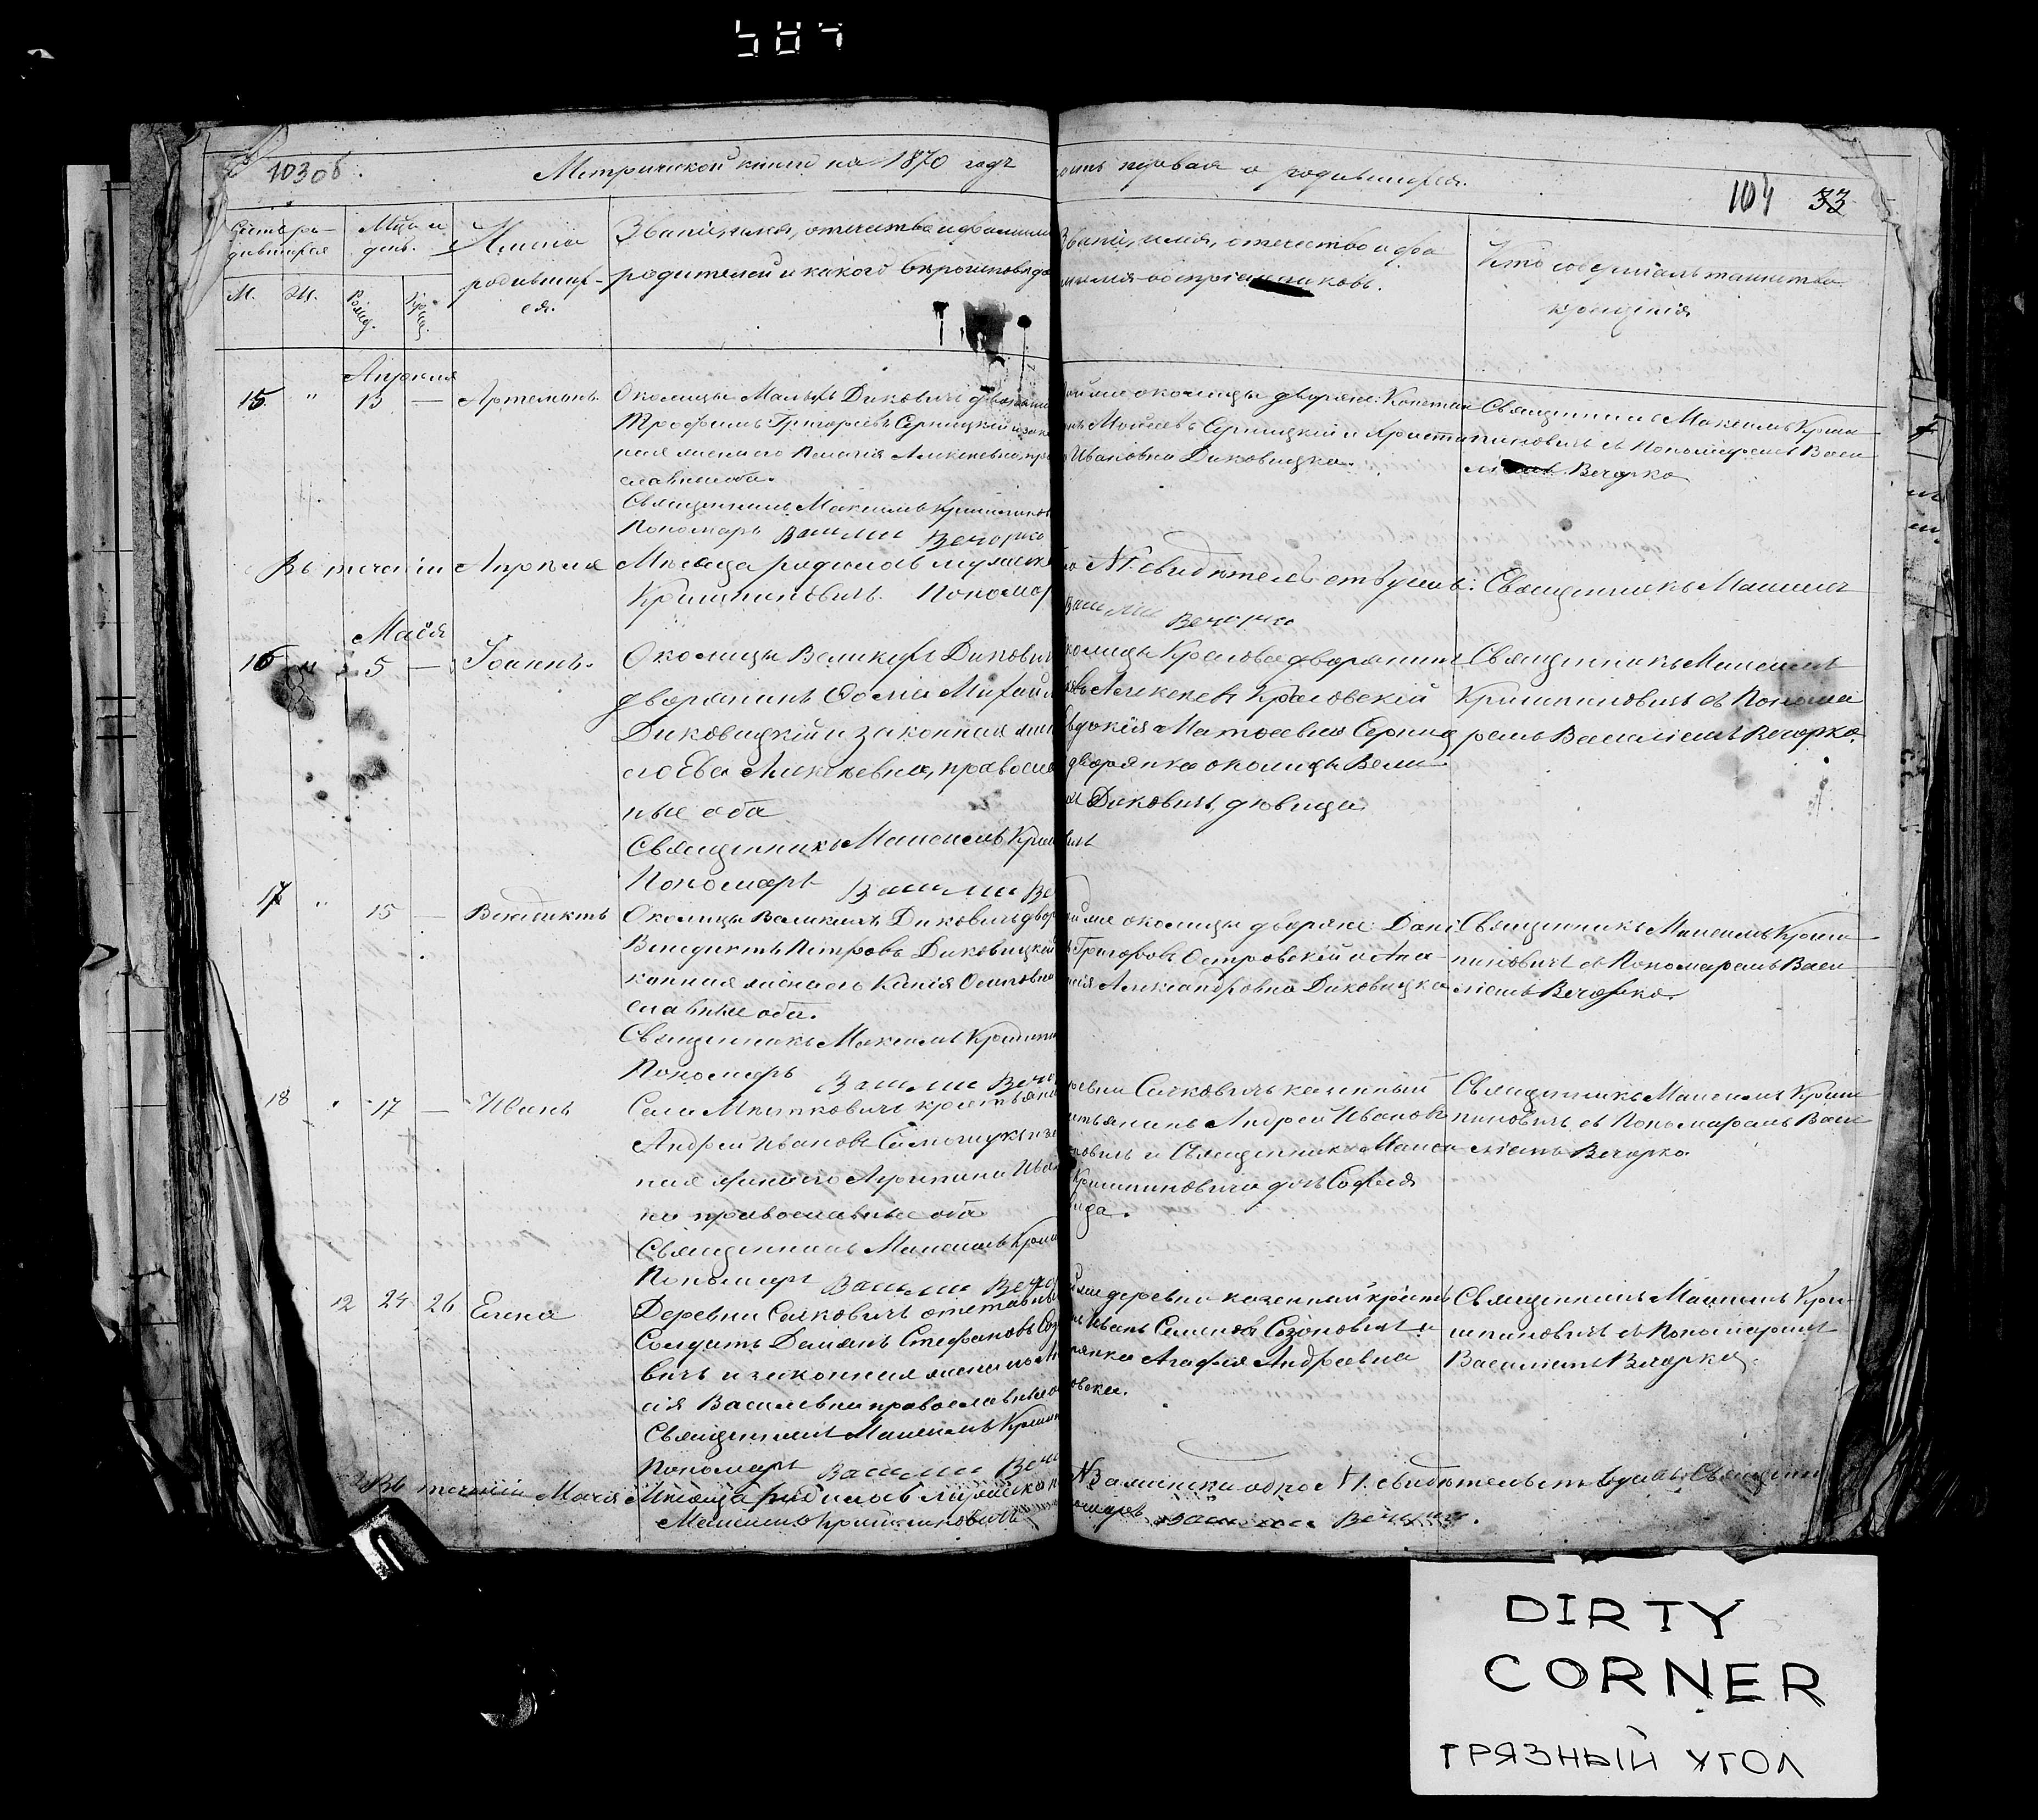 584
103об.
Метрической книги на 1870 годъ
первая о родившихся.
104 33
Счетъ ро-
дившихся
Мцъ и
день.
М. Ж.
Рожд. Крещ.
Имена
родивших-
ся.
Званіе, имя, отчество и фамилія
родителей и какого вѣроисповѣда
Званіе, имя, отчество и фа
милія воспріемниковъ.
Кто совершалъ таинство
крещенія
Апреля
15 " 13 — Артемонъ.
Околицы Малыхъ Диковичъ дворянинъ
Трофимъ Григорьевъ Серницкій и зако
ная жена его Пелагія Алексѣевна пра
славные оба.
Священникъ Максимъ Кришпинов
Пономарь Василій Вечорко
околицы дворяне: Констан
Мойсеевъ Серницкій и Христи
Ивановна Диковицка.
Священникъ Максимъ Криш
пиновичъ съ Пономаремъ Васи
Вечорко
Въ теченіи Апреля Мѣсяца родилось мужеска
Кришпиновичъ. Пономар
№ 1. свидѣтельствуемъ: Священникъ Максимъ
Василій Вечорко
Маія
16 " 5 — Іоаннъ.
Околицы Великихъ Дикович
дворянинъ Ѳома Михайл
Диковицкій и законная жен
его Ева Алексѣевна, правосла
ные оба
Священникъ Максимъ Криш
Пономарь Василій Ве
колицы Крагова дворянинъ
Алексѣевъ Краговскій
вдокія Матѳеевна Серниц
дворянка околицы Вели
Диковичъ, дѣвица
Священникъ Максимъ
Кришпиновичъ съ Понома
ремъ Василіемъ Вечорко.
17 " 15 — Венедиктъ
Околицы Великихъ Диковичъ двор
Венедиктъ Петровъ Диковицкій
конная жена его Ксенія Осиповна
славные оба.
Священникъ Максимъ Кришпи
Пономарь Василій Вечо
околицы дворяне: Дані
Григоровъ Островскій и Ана
Александровна Диковицка
Священникъ Максимъ Криш
пиновичъ съ Пономаремъ Васи
ліемъ Вечорко.
18 " 17 — Иванъ
Села Мѣстковичъ крестьянин
Андрей Ивановъ
ная жена его Агрипина Иван
на православные оба
Священникъ Максимъ Криш
Пономарь Василій Вечо
ревни Сачковичъ казенный
стьянинъ Андрей Ивановъ
новичъ и Священника Макси
Кришпиновича дочь Софія
вица.
Священникъ Максимъ Криш
пиновичъ съ Пономаремъ Васи
ліемъ Вечорко
12 24 26 Елена
Деревни Сачковичъ отставны
Солдатъ Демянъ Стефановъ Соз
вичъ и законная жена его
ія Васильевна православные о
Священникъ Максимъ Кришп
Пономарь Василій Вечо
деревни казенный крестья
Иванъ Семеновъ Созоновичъ и
Агафія Андреевна
овска.
Священникъ Максимъ Кри-
шпиновичъ съ Пономаремъ
Василіемъ Вечорко.
Въ теченіи Маія Мѣсяца родилось мужеска
№ 3 а женска одно № 1. свидѣтельствуемъ: Священни
Максимъ Кришпиновичъ
номарь Василій Вечорко.
DIRTY
CORNER
ГРЯЗНЫЙ УГОЛ